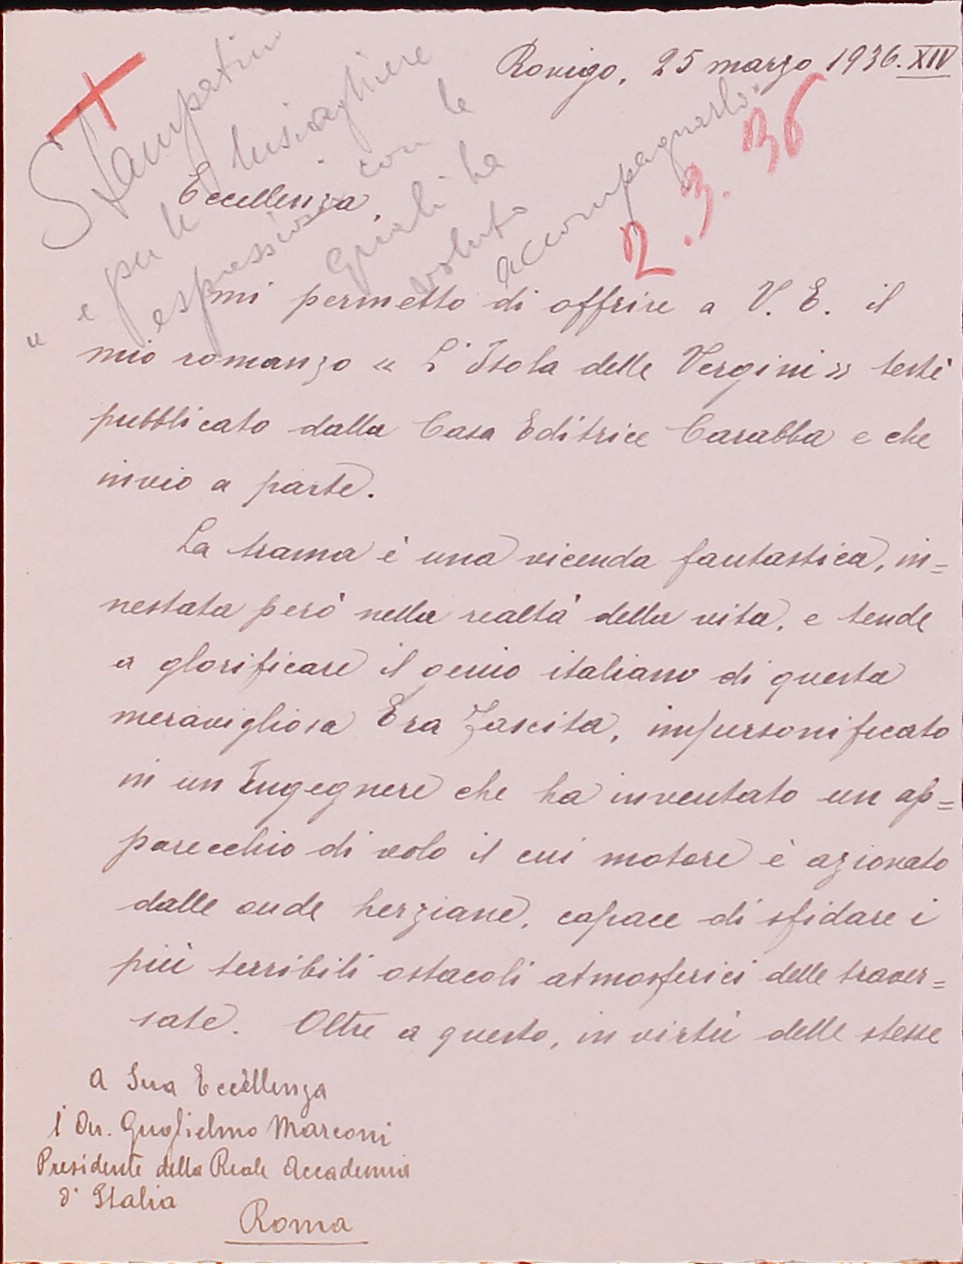 Rovigo, 25 marzo 1936. XIV
Stampatino
" e per le lusinghiere
espressioni con le
quali ha
voluto
accompagnarlo.
2.3.36
Eccellenza,
mi permetto di offrire a V. E. il
mio romanzo « L'Isola delle Vergini » testè
pubblicato dalla Casa Editrice Carabba e che
invio a parte.
La trama è una vicenda fantastica, in=
nestata però nella realtà della vita, e tende
a glorificare il genio italiano di questa
meravigliosa Era Fascista, impersonificato
in un Ingegnere che ha inventato un ap=
parecchio di volo il cui motore è azionato
dalle onde herziane, capace di sfidare i
più terribili ostacoli atmosferici delle traver=
sate. Oltre a questo, in virtù delle stesse
A Sua Eccellenza
l'On. Guglielmo Marconi
Presidente della Reale Accademia
d'Italia
Roma